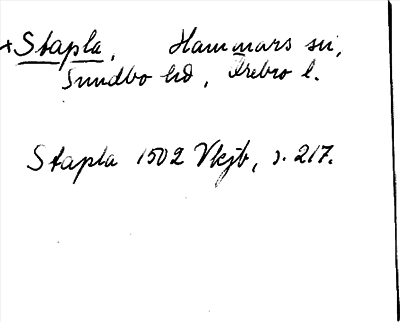 +Stapla, Hammars sn,
Sundbo hd, Örebro l.
Stapla 1502 Vkjb, s. 217.